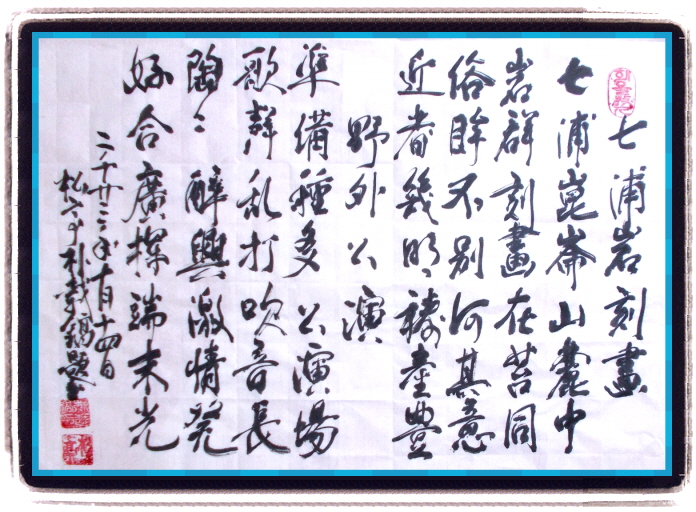 七浦岩刻畵
七浦崑崙山麓中
岩群刻畵在苔同
俗眸不別何其意
近者幾明禱産豊
野外公演
準備種多公演場
歌群乱打吹音長
陶〻醉興激情発
好合廣探端末光
二千廿三年十月十四日
松 朴載鎬題